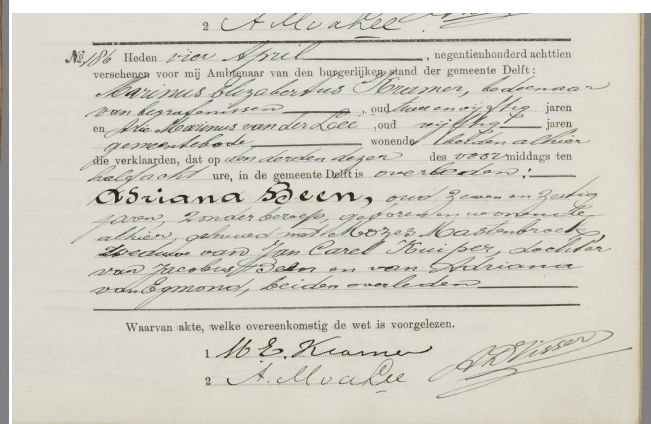 2 A. M v d Lee
No. 186 Heden vier April , negentienhonderd achttien
verschenen voor mij Ambtenaar van den burgerlijken stand der gemeente Delft:
Marinus Elizabertus Kramer, bedienaar
van begrafenissen , oud twee en vijftig jaren
en Arie Marinus van der Lee , oud vijftig jaren
gemeentebode, wonende beiden alhier
die verklaarden, dat op den derden dezer des voormiddags ten
half acht ure, in de gemeente Delft is overleden:
Adriana Been, oud zeven en zestig
jaren, zonder beroep, geboren en wonende
alhier, gehuwd met Mozes Mastenbroek,
weduwe van Jan Carel Kuiper, dochter
van Jacobus Been en van Adriana
van Egmond, beiden overleden
Waarvan akte, welke overeenkomstig de wet is voorgelezen.
1 M. E. Kramer
2 A. M v d Lee